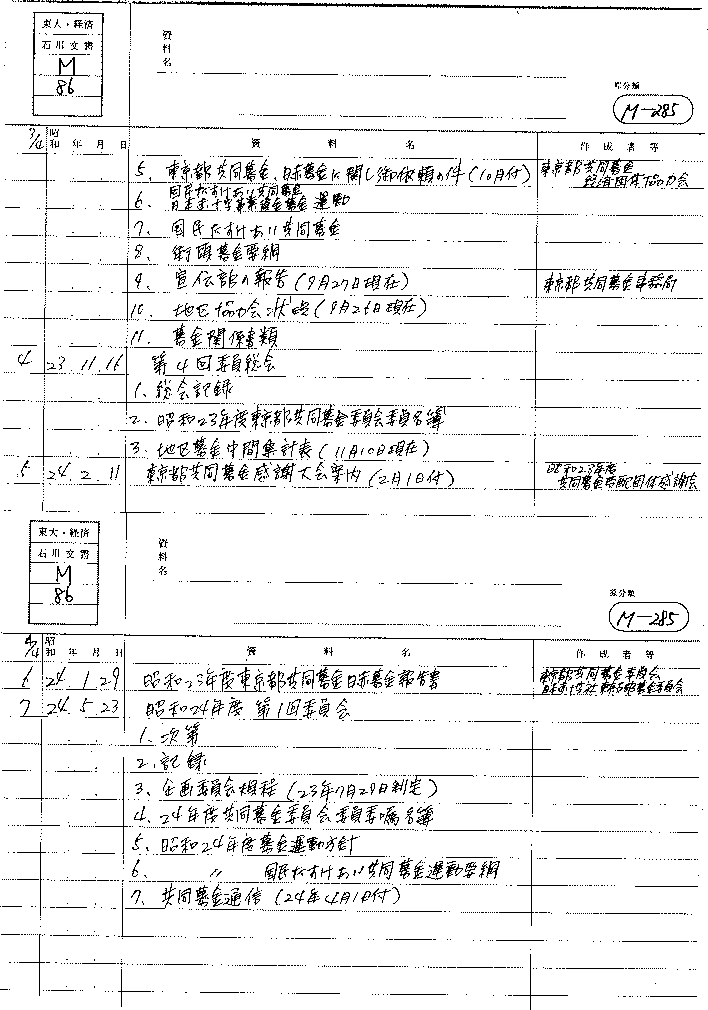 東大・経済
石川文書
M
86
資料名
原分類
M-285
3/4 昭和 年 月 日 資 料 名 作 成 者 等
5. 東京都共同募金、日赤募金に関し御依頼の件(10月付) 東京都共同募金
経済団体協力会
国民たすけあい共同募金
6. 日本赤十字事業資金募金 運動
7. 国民たすけあい共同募金
8. 街頭募金要綱
9. 宣伝部の報告(9月27日現在) 東京都共同募金事務局
10. 地区協力会状況(9月26日現在)
11. 募金関係書類
4 23.11.16 第4回委員総会
1. 総会記録
2. 昭和23年度東京都共同募金委員会委員名簿
3. 地区募金中間集計表(11月10日現在)
5 24.2.11 東京都共同募金感謝大会案内(2月1日付) 昭和23年度
共同募金 団体感謝会
東大・経済
石川文書
M
86
資料名
原分類
M-285
4/4 昭和 年 月 日 資 料 名 作 成 者 等
6 24.1.29 昭和23年度東京都共同募金日赤募金報告書 東京都共同募金委員会
日本赤十字社東京都募金委員会
7 24.5.23 昭和24年度 第1回委員会
1. 次第
2. 記録
3. 企画委員会規程(23年7月29日制定)
4. 24年度共同募金委員会委員委嘱名簿
5. 昭和24年度募金運動方針
6. 〃 国民たすけあい共同募金運動要綱
7. 共同募金通信(24年4月1日付)